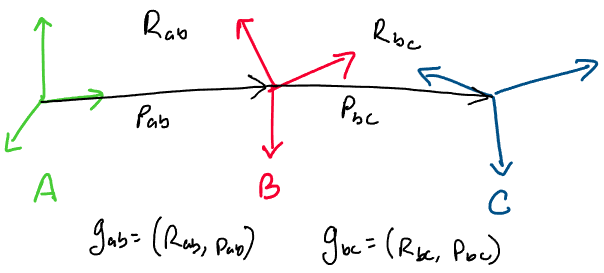 R_ab R_bc
P_ab P_bc
A B C
g_ab = (R_ab, P_ab) g_bc = (R_bc, P_bc)